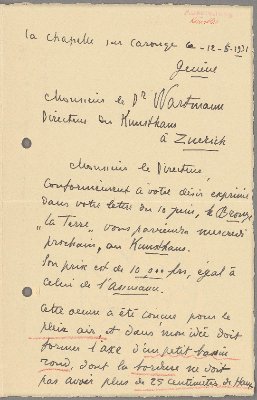 La Chapelle sur Carouge le - 12 - 6 - 1931
Genève
Monsieur le Dr Wartmann
Directeur du Kunsthaus
à Zurich
Monsieur le Directeur,
Conformément à votre désir exprimé
dans votre lettre du 10 juin, le Bronze
"La Terre" vous parviendra mercredi
prochain, au Kunsthaus.
Son prix est de 10,000 frs, égal à
celui de l'
Cette œuvre a été conçue pour le
plein air, et dans mon idée doit
former l'axe d'un petit bassin
rond, dont la bordure ne doit
pas avoir plus de 25 centimètres de Haut